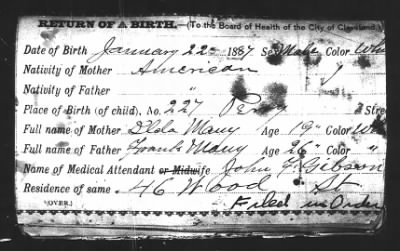 RETURN OF A BIRTH.—(To the Board of Health of the City of Cleveland.)
Date of Birth January 22 1887 Sex Male Color
Nativity of Mother American
Nativity of Father "
Place of Birth (of child), No. 227 Perry Stre
Full name of Mother Age 19 Color
Full name of Father Frank Age 26 Color "
Name of Medical Attendant or Midwife John F. Gibson
Residence of same 46 Wood St
(OVER.) Filed in Order